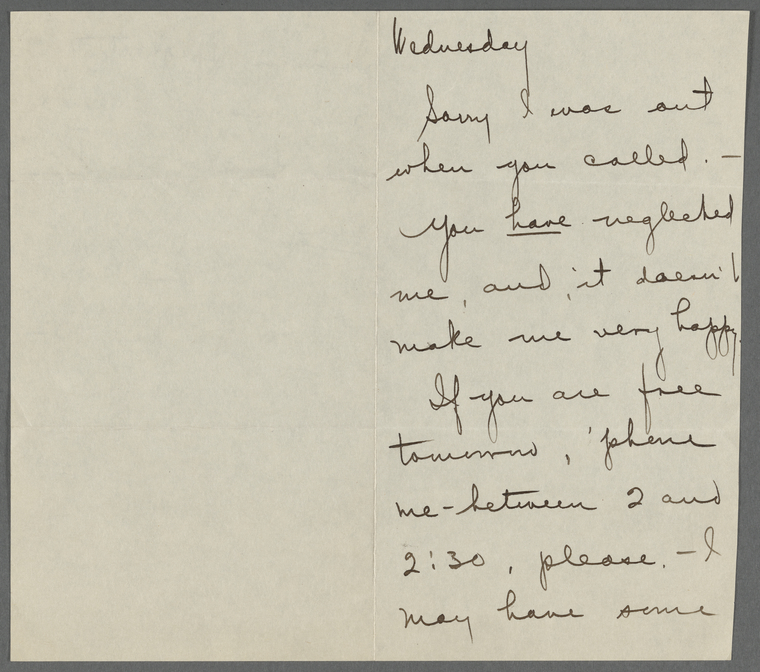 Wednesday
Sorry I was out
when you called. —
You have neglected
me, and, it doesn't
make me very happy.
If you are free
tomorrow, 'phone
me - between 2 and
2:30, please. — I
may have some